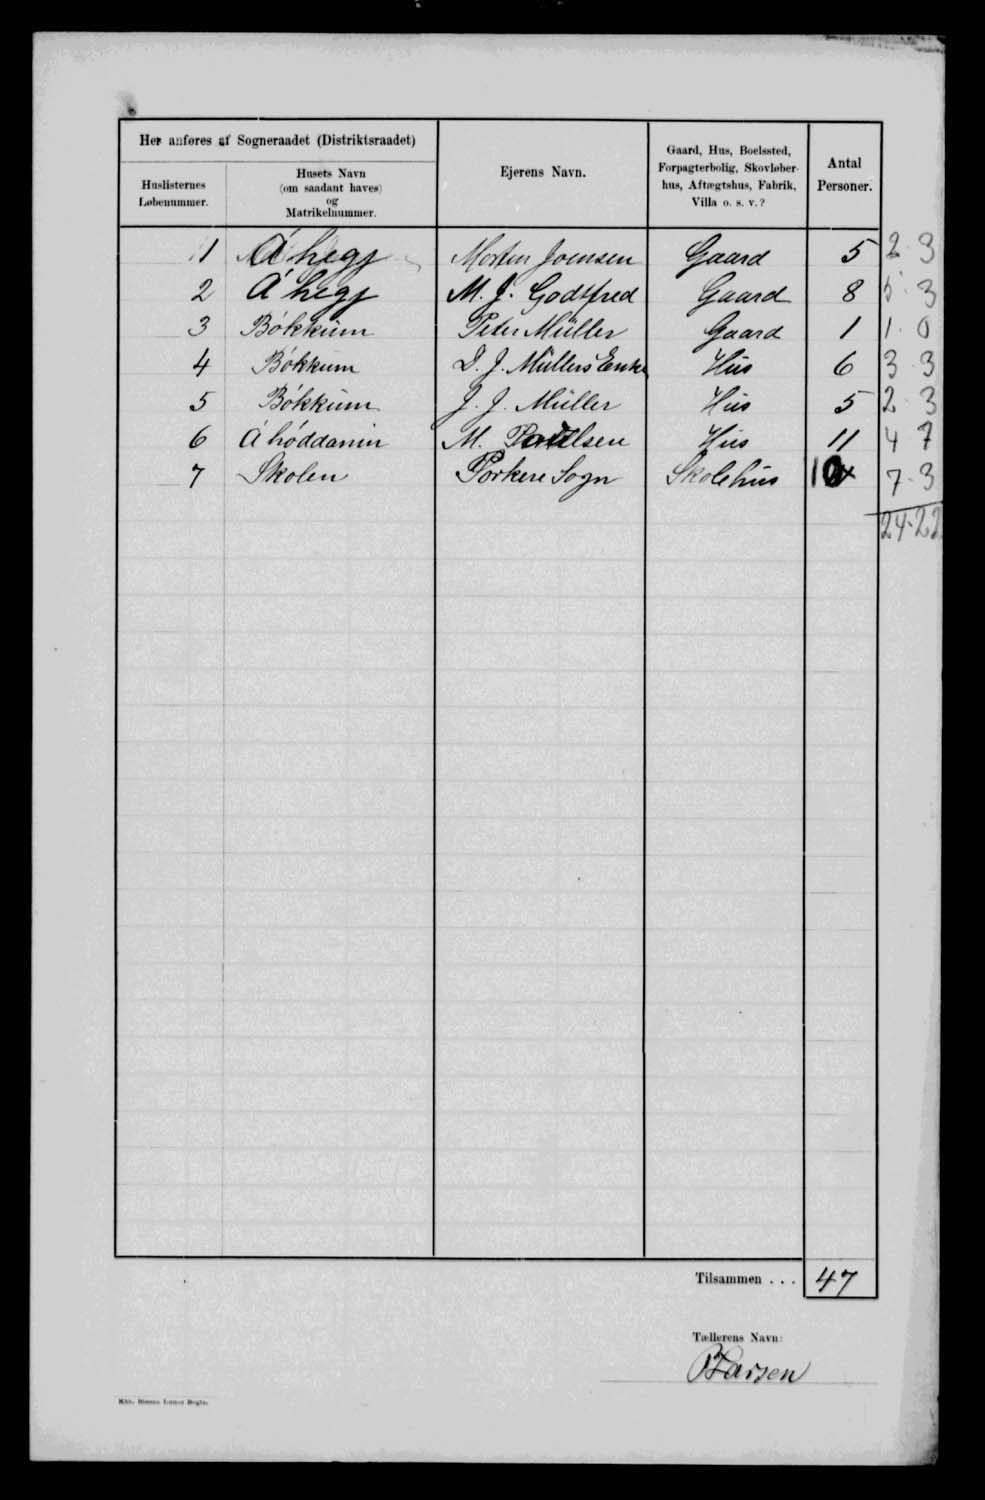 Her anføres af Sogneraadet (Distriktsraadet)
Huslisternes
Løbenummer.
Husets Navn
(om saadant haves)
og
Matrikelnummer.
Ejerens Navn.
Gaard, Hus, Boelssted,
Forpagterbolig, Skovløber-
hus, Aftægtshus, Fabrik,
Villa o. s. v.?
Antal
Personer.
1 Á hegj Morten Joensen Gaard 5 2·3
2 Á hegj M. J. Godtfred Gaard 8 5·3
3 Bókkum Peter Müller Gaard 1 1·0
4 Bókkum D. J. Müllers Enke Hus 6 3·3
5 Bókkum J. J. Müller Hus 5 2·3
6 Á hóddanum M. Poulsen Hus 11 4 7
7 Skolen Porkere Sogn Skolehus 10 7·3
24·22
Tilsammen . . . 47
Tællerens Navn: